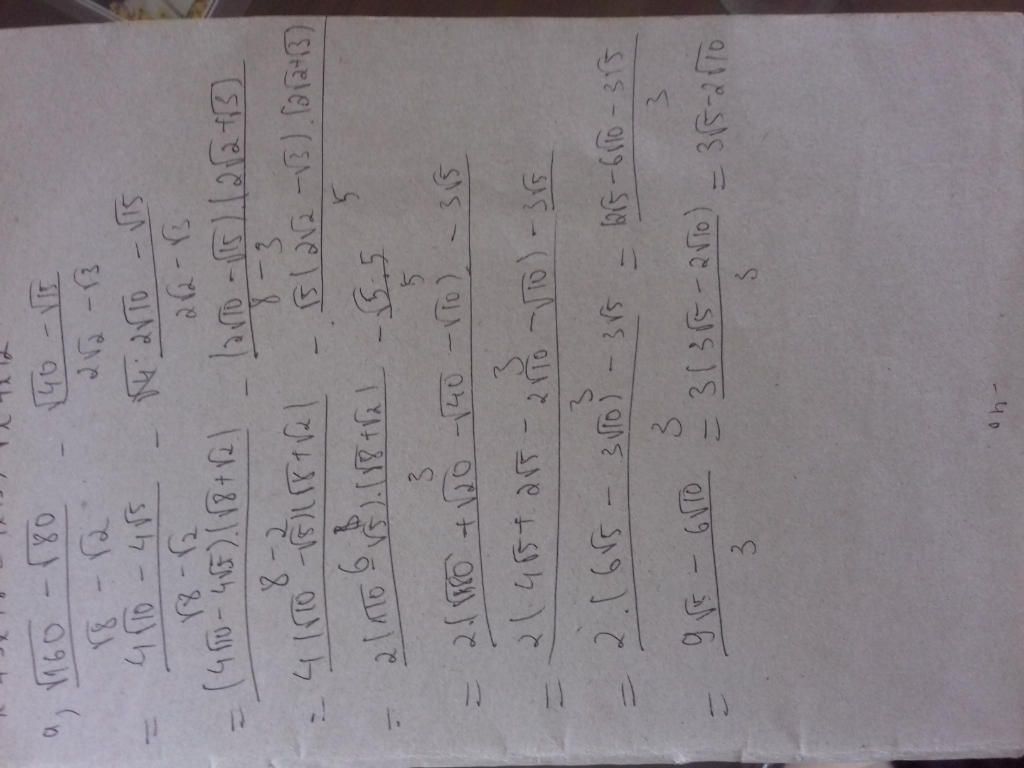 a) (√160 - √80)/(√8 - √2) - (√40 - √15)/(2√2 - √3)
= (4√10 - 4√5)/(√8 - √2) - (√4.2√10 - √15)/(2√2 - √3)
= ((4√10 - 4√5).(√8+√2))/(8 - 2) - ((2√10 - √15)(2√2+√3))/(8 - 3)
= (4(√10 - √5)(√8+√2))/6 - (√5(2√2 - √3).(2√2+√3))/5
= (2(√10 - √5).(√8+√2))/3 - (√5.5)/5
= (2.(√80 + √20 - √40 - √10) - 3√5)/3
= (2(4√5 + 2√5 - 2√10 - √10) - 3√5)/3
= (2.(6√5 - 3√10) - 3√5)/3 = (12√5 - 6√10 - 3√5)/3
= (9√5 - 6√10)/3 = (3(3√5 - 2√10))/3 = 3√5 - 2√10